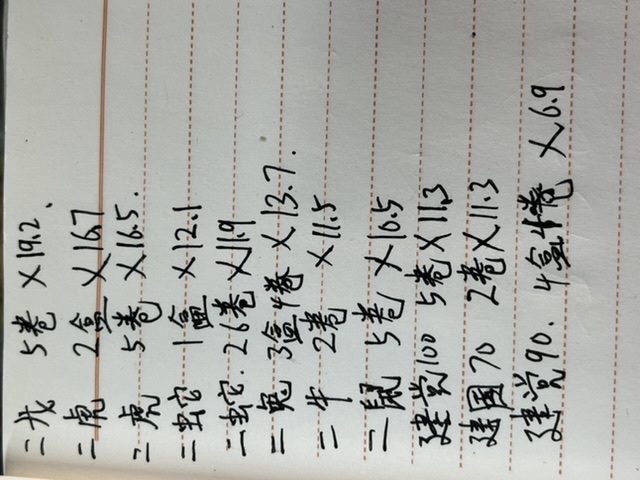 二龙 5卷 ×19.2、
二虎 2盒 ×16.7
二虎 5卷 ×16.5.
二蛇 1盒 ×12.1
二蛇. 26卷 ×11.9
二兔 3盒4卷 ×13.7.
二牛 2卷 ×11.5
二鼠 5卷 ×10.5
建党100 5卷 ×11.3
建国70 2卷 ×11.3
建党90. 4盒4卷 ×6.9